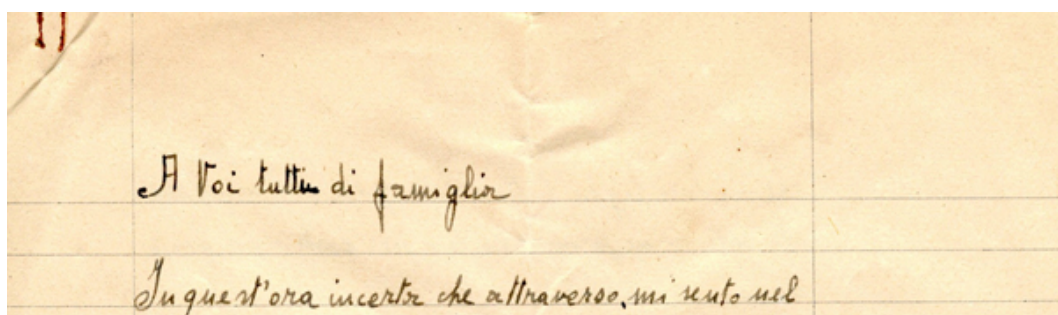 A Voi tutti di famiglia
In quest'ora incerta che attraverso, mi sento nel